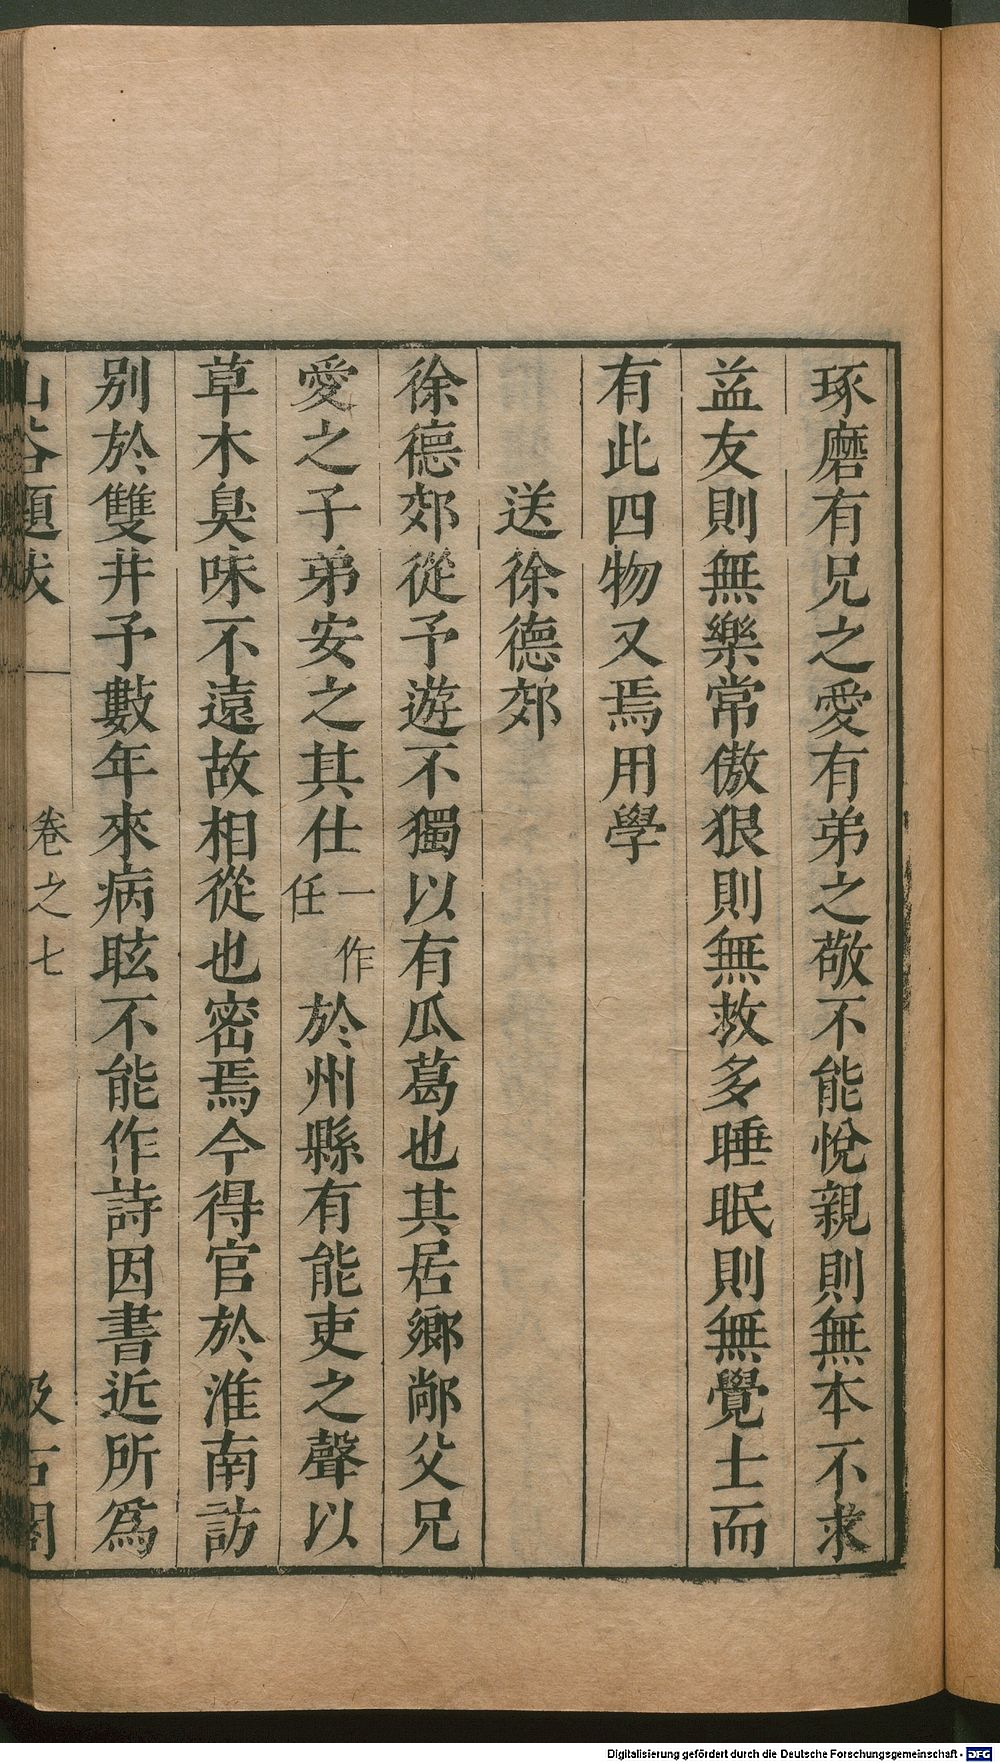 琢磨有兄之愛有弟之敬不能悅親則無本不求
益友則無樂常傲狠則無救多睡眠則無覺士而
有此四物又焉用學
送徐德郊
徐德郊從予遊不獨以有瓜葛也其居鄉鄰父兄
愛之子弟安之其仕一作任於州縣有能吏之聲以
草木臭味不遠故相從也密焉今得官於淮南訪
別於雙井予數年來病眩不能作詩因書近所爲
山谷題跋 卷之七 汲古閣
Digitalisierung gefördert durch die Deutsche Forschungsgemeinschaft - DFG